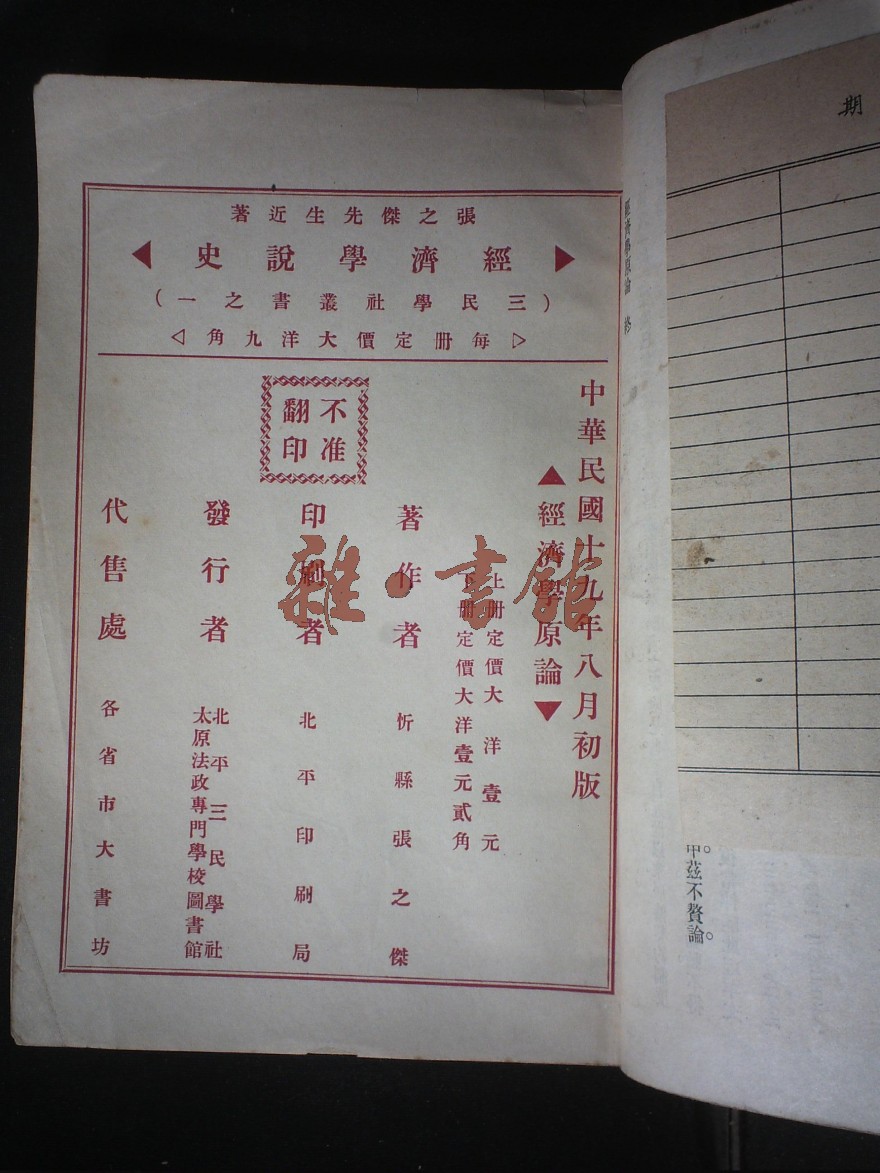 期
經濟學原論 終
中茲不贅論。
張之傑先生近著
經濟學說史
(三民學社叢書之一)
每册定價大洋九角
中華民國十九年八月初版
經濟學原論
上册定價大洋壹元
下册定價大洋壹元貳角
不准
翻印
著作者 忻縣張之傑
印刷者 北平印刷局
發行者 北平三民學社
太原法政專門學校圖書館
代售處 各省市大書坊
雜·書館